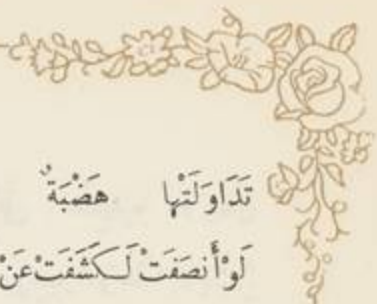 تَدَاوَلَتْها هَضْبَةٌ
لَوْ أَنصَفَتْ لَكَشَفَتْ عَنْ